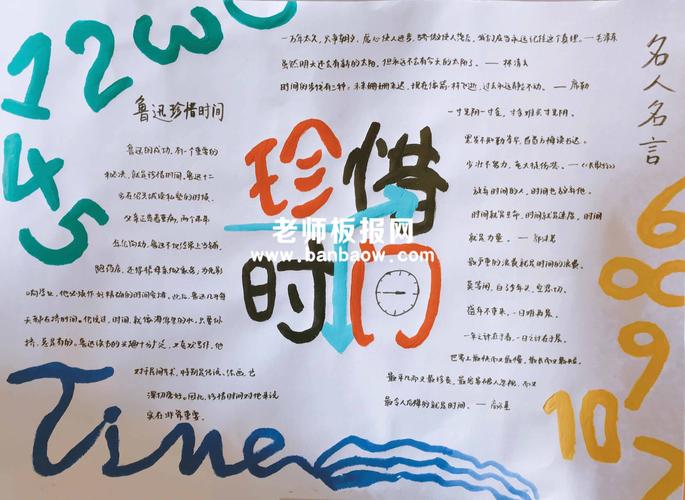 1 2 3
一万年太久，只争朝夕，虚心使人进步，骄傲使人落后，我们应当永远记住这个真理。——毛泽东
虽然明天还会有新的太阳，但永远不会有今天的太阳了。——林清玄
时间的步伐有三种：未来姗姗来迟，现在像箭一样飞逝，过去永远静立不动。——席勒
一寸光阴一寸金，寸金难买寸光阴。
黑发不知勤学早，白首方悔读书迟。
少壮不努力，老大徒伤悲。——
放弃时间的人，时间也放弃他。
时间就是生命，时间就是速度，时间
就是力量。——郭沫若
最严重的浪费就是时间的浪费。
莫等闲，白了少年头，空悲切。
盛年不重来，一日难再晨。
一年之计在于春，一日之计在于晨。
世界上最快而又最慢，最长而又最短，
最平凡而又最珍贵，最易被人忽视，而又
最令人后悔的就是时间。——高尔基
名人名言
鲁迅珍惜时间
鲁迅的成功，有一个重要的
秘决，就是珍惜时间。鲁迅十二
岁在绍兴城读私塾的时候，
父亲正患着重病，两个弟弟
年纪尚幼，鲁迅不仅经常上当铺，
跑药店，还得帮母亲做家务，为免影
响学业，他必须作好精确的时间安排。此后，鲁迅几乎每
天都在挤时间。他说过，时间，就像海绵里的水，只要你
挤，总是有的。鲁迅读书的兴趣十分广泛，又喜欢写作，他
对于民间艺术，特别是传说、绘画，也
深切爱好。因此，珍惜时间对他来说
实在非常重要。
珍惜
时间
老师板报网
www.banbaow.com
4 5
6
8
9
10
Time